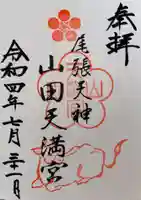 奉拝
尾張天神
山田天満宮
令和四年七月二十一日